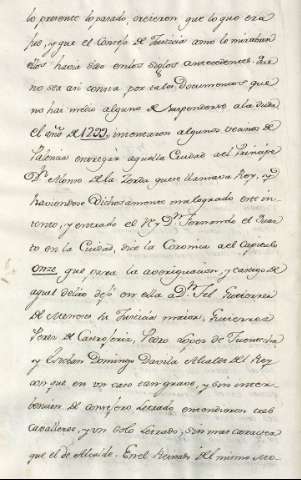 lo presente lo pasado, creieron que lo que era
y que el Consejo de Justicia como lo miraban
havia sido en los siglos antecedentes. Pue
no sea asi consta por tales Documentos que
no hai medio alguno de suspenderse a la duda
El año de 1299 intentaron algunos vecinos de
Palencia entregar aquella Ciudad al Principe
Dn Alonso de la Zerda que se llamava Rey, y
haviendose dichosamente malogrado este in
tento, y entrado el Rey Dn Fernando el Quar
to en la Ciudad, dice la Coronica al Capitulo
onze que para la averiguacion, y castigo de
aquel delito dejó en ella Dn Tel Gutierrez
de Meneses la Justicia maior, Gutierrez
Perez de Castrojeriz, Pedro Lopez de Fuentecha
y Esteban Domingo Davila Alcaldes del Rey
asi que en un caso tan grave, y sin inter
bencion de consejero Letrado entendieron tres
Cavalleros, y un solo Letrado, sin mas caracter
que el de Alcalde. En el Reinado del mismo